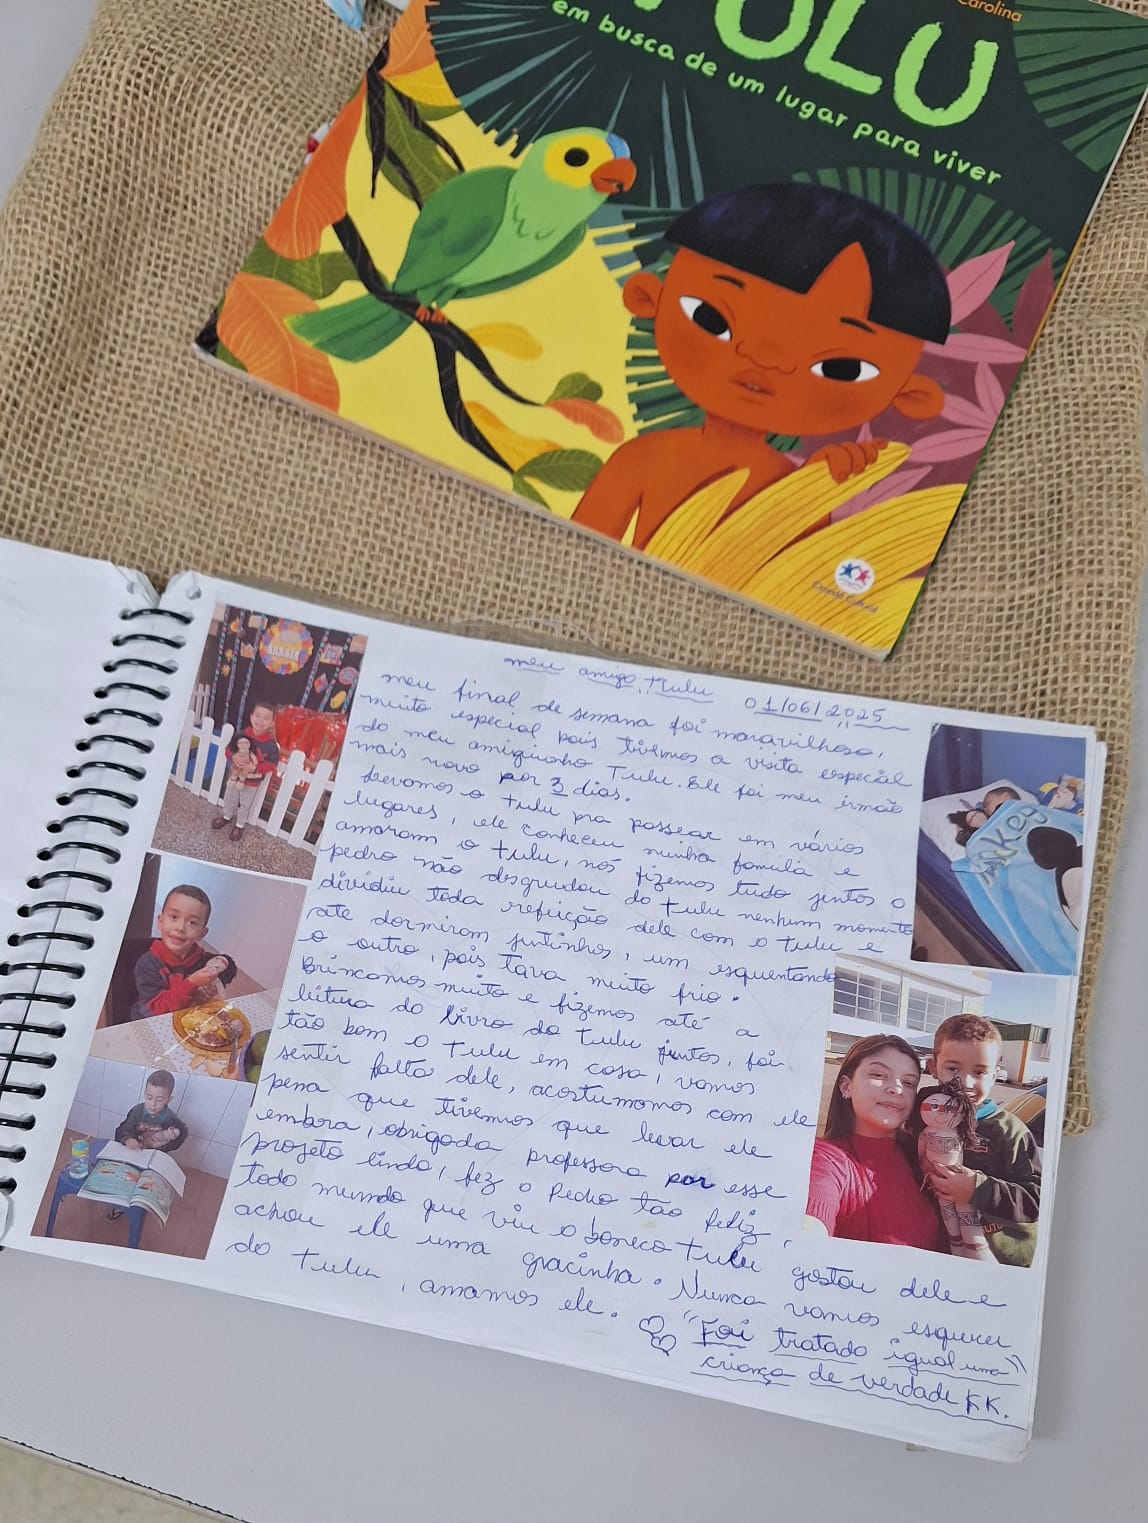 Carolina
TULU
em busca de um lugar para viver
Ciranda Cultural
meu amigo tulu 01/06/2025
meu final de semana foi maravilhoso,
muito especial pois tivemos a visita especial
do meu amiguinho Tulu. Ele foi meu irmão
mais novo por 3 dias.
Levamos o tulu pra passear em vários
lugares, ele conheceu minha família e
amaram o tulu, nós fizemos tudo juntos o
pedro não desgrudou do tulu nenhum momento
dividiu toda refeição dele com o tulu e
até dormiram juntinhos, um esquentando
o outro, pois tava muito frio.
Brincamos muito e fizemos até a
leitura do livro do tulu juntos, foi
tão bom o tulu em casa, vamos
sentir falta dele, acostumamos com ele
pena que tivemos que levar ele
embora, obrigada professora por esse
projeto lindo, fez o Pedro tão feliz,
todo mundo que viu o boneco tulu gostou dele e
achou ele uma gracinha. Nunca vamos esquecer
do tulu, amamos ele. "Foi tratado igual uma"
criança de verdade KK.